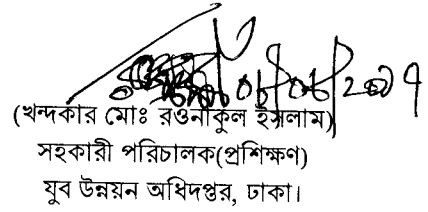 (খন্দকার মোঃ রওনাকুল ইসলাম)
সহকারী পরিচালক(প্রশিক্ষণ)
যুব উন্নয়ন অধিদপ্তর, ঢাকা।